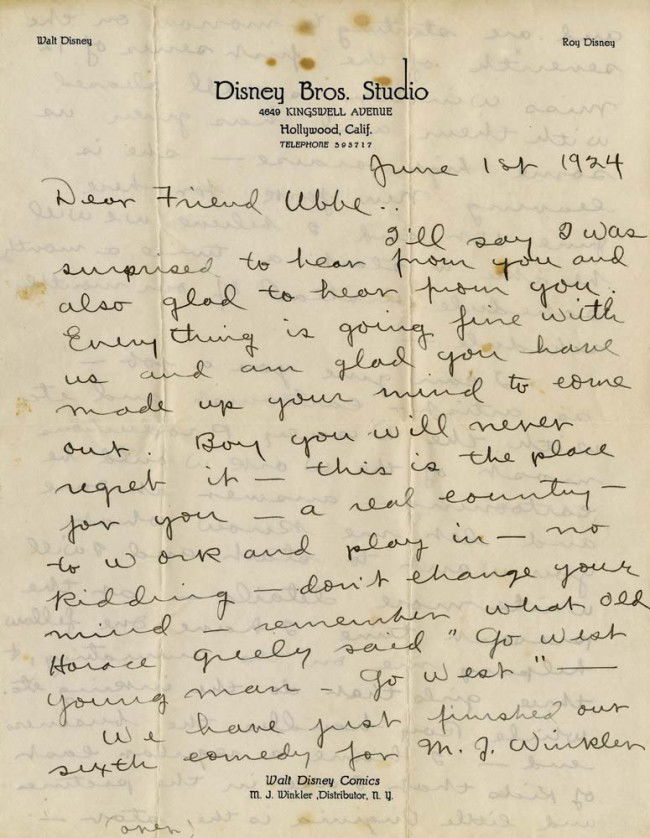 Walt Disney
Roy Disney
Disney Bros. Studio
4649 KINGSWELL AVENUE
Hollywood, Calif.
TELEPHONE 595717
June 1st 1924
Dear Friend Ubbe..
I'll say I was
surprised to hear from you and
also glad to hear from you.
Everything is going fine with
us and am glad you have
made up your mind to come
out. Boy you will never
regret it — this is the place
for you — a real country —
to work and play in — no
kidding — don't change your
mind — remember what old
Horace Greely said "Go west
young man - Go west" —
We have just finished our
sixth comedy for M. J. Winkler
Walt Disney Comics
M. J. Winkler ,Distributor, N. Y.
over,